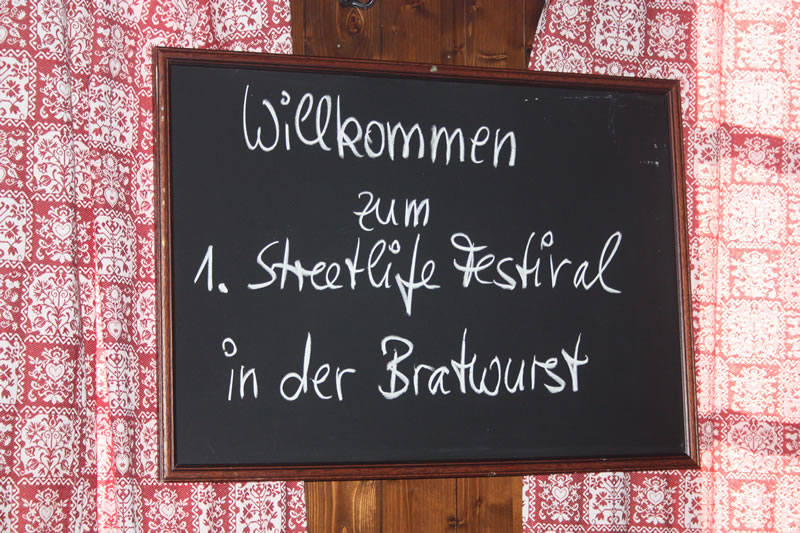 Willkommen
zum
1. Streetlife Festival
in der Bratwurst